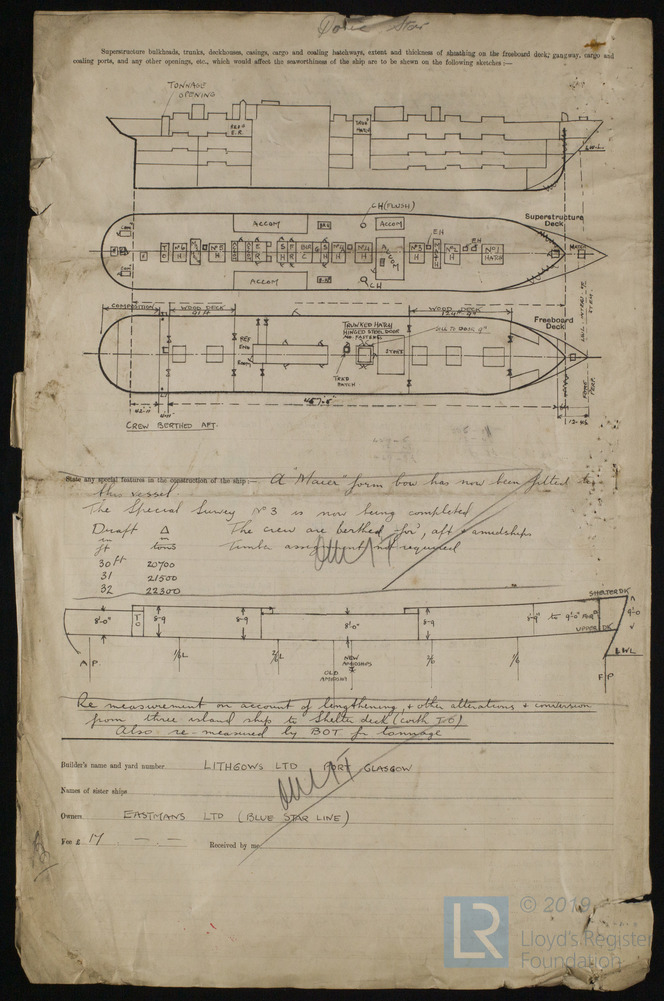 Doric Star
Superstructure bulkheads, trunks, deckhouses, casings, cargo and coaling hatchways, extent and thickness of sheathing on the freeboard deck, gangway, cargo and
coaling ports, and any other openings, etc., which would affect the seaworthiness of the ship are to be shewn on the following sketches :—
TONNAGE
OPENING
REFG
E.R.
TRUNK
HATCH
L.W.L
CH (FLUSH)
ACCOM
ACCOM
Superstructure
Deck
EH
EH
TO
Nº6
H
Nº5
H
Nº4
H
Nº3
H
Nº2
H
Nº1
HATCH
ACCOM
ACCOM
CH
COMPOSITION
WOOD DECK
91 FT
WOOD DECK
124'-9"
Freeboard
Deck
TRUNKED HATCH
HINGED STEEL DOOR
NO FASTENGS
SILL TO DOOR 9"
REF
ENG
STORE
TRKD
HATCH
42'-11"
457'-5"
13'-45
FORE
PERP.
CREW BERTHED AFT.
State any special features in the construction of the ship :— A "Maier" form bow has now been fitted to
this vessel
The Special Survey Nº 3 is now being completed
Draft Δ The crew are berthed for'd, aft & amidships
in in
ft tons Timber assignment not required
30 ft 20700
31 21500
32 22300
SHELTER DK
8'-0"
TO
8-9
8-9
8'-0"
8-9
8'-9" to 9'-0" FOR'D
9'-0
UPPER DK
A P
1/6L
2/6L
OLD
AMIDSHIPS
NEW
AMIDSHIPS
2/6
1/6
LWL
F P
Re measurement on account of lengthening, & other alterations & conversion
from three island ship to Shelter deck (with T.O)
Also re-measured by BOT for tonnage
Builder's name and yard number. LITHGOWS LTD PORT GLASGOW
Names of sister ships
Owners EASTMANS LTD (BLUE STAR LINE)
Fee £ 17 — . —
Received by me
LR
© 2019
Lloyd's Register
Foundation